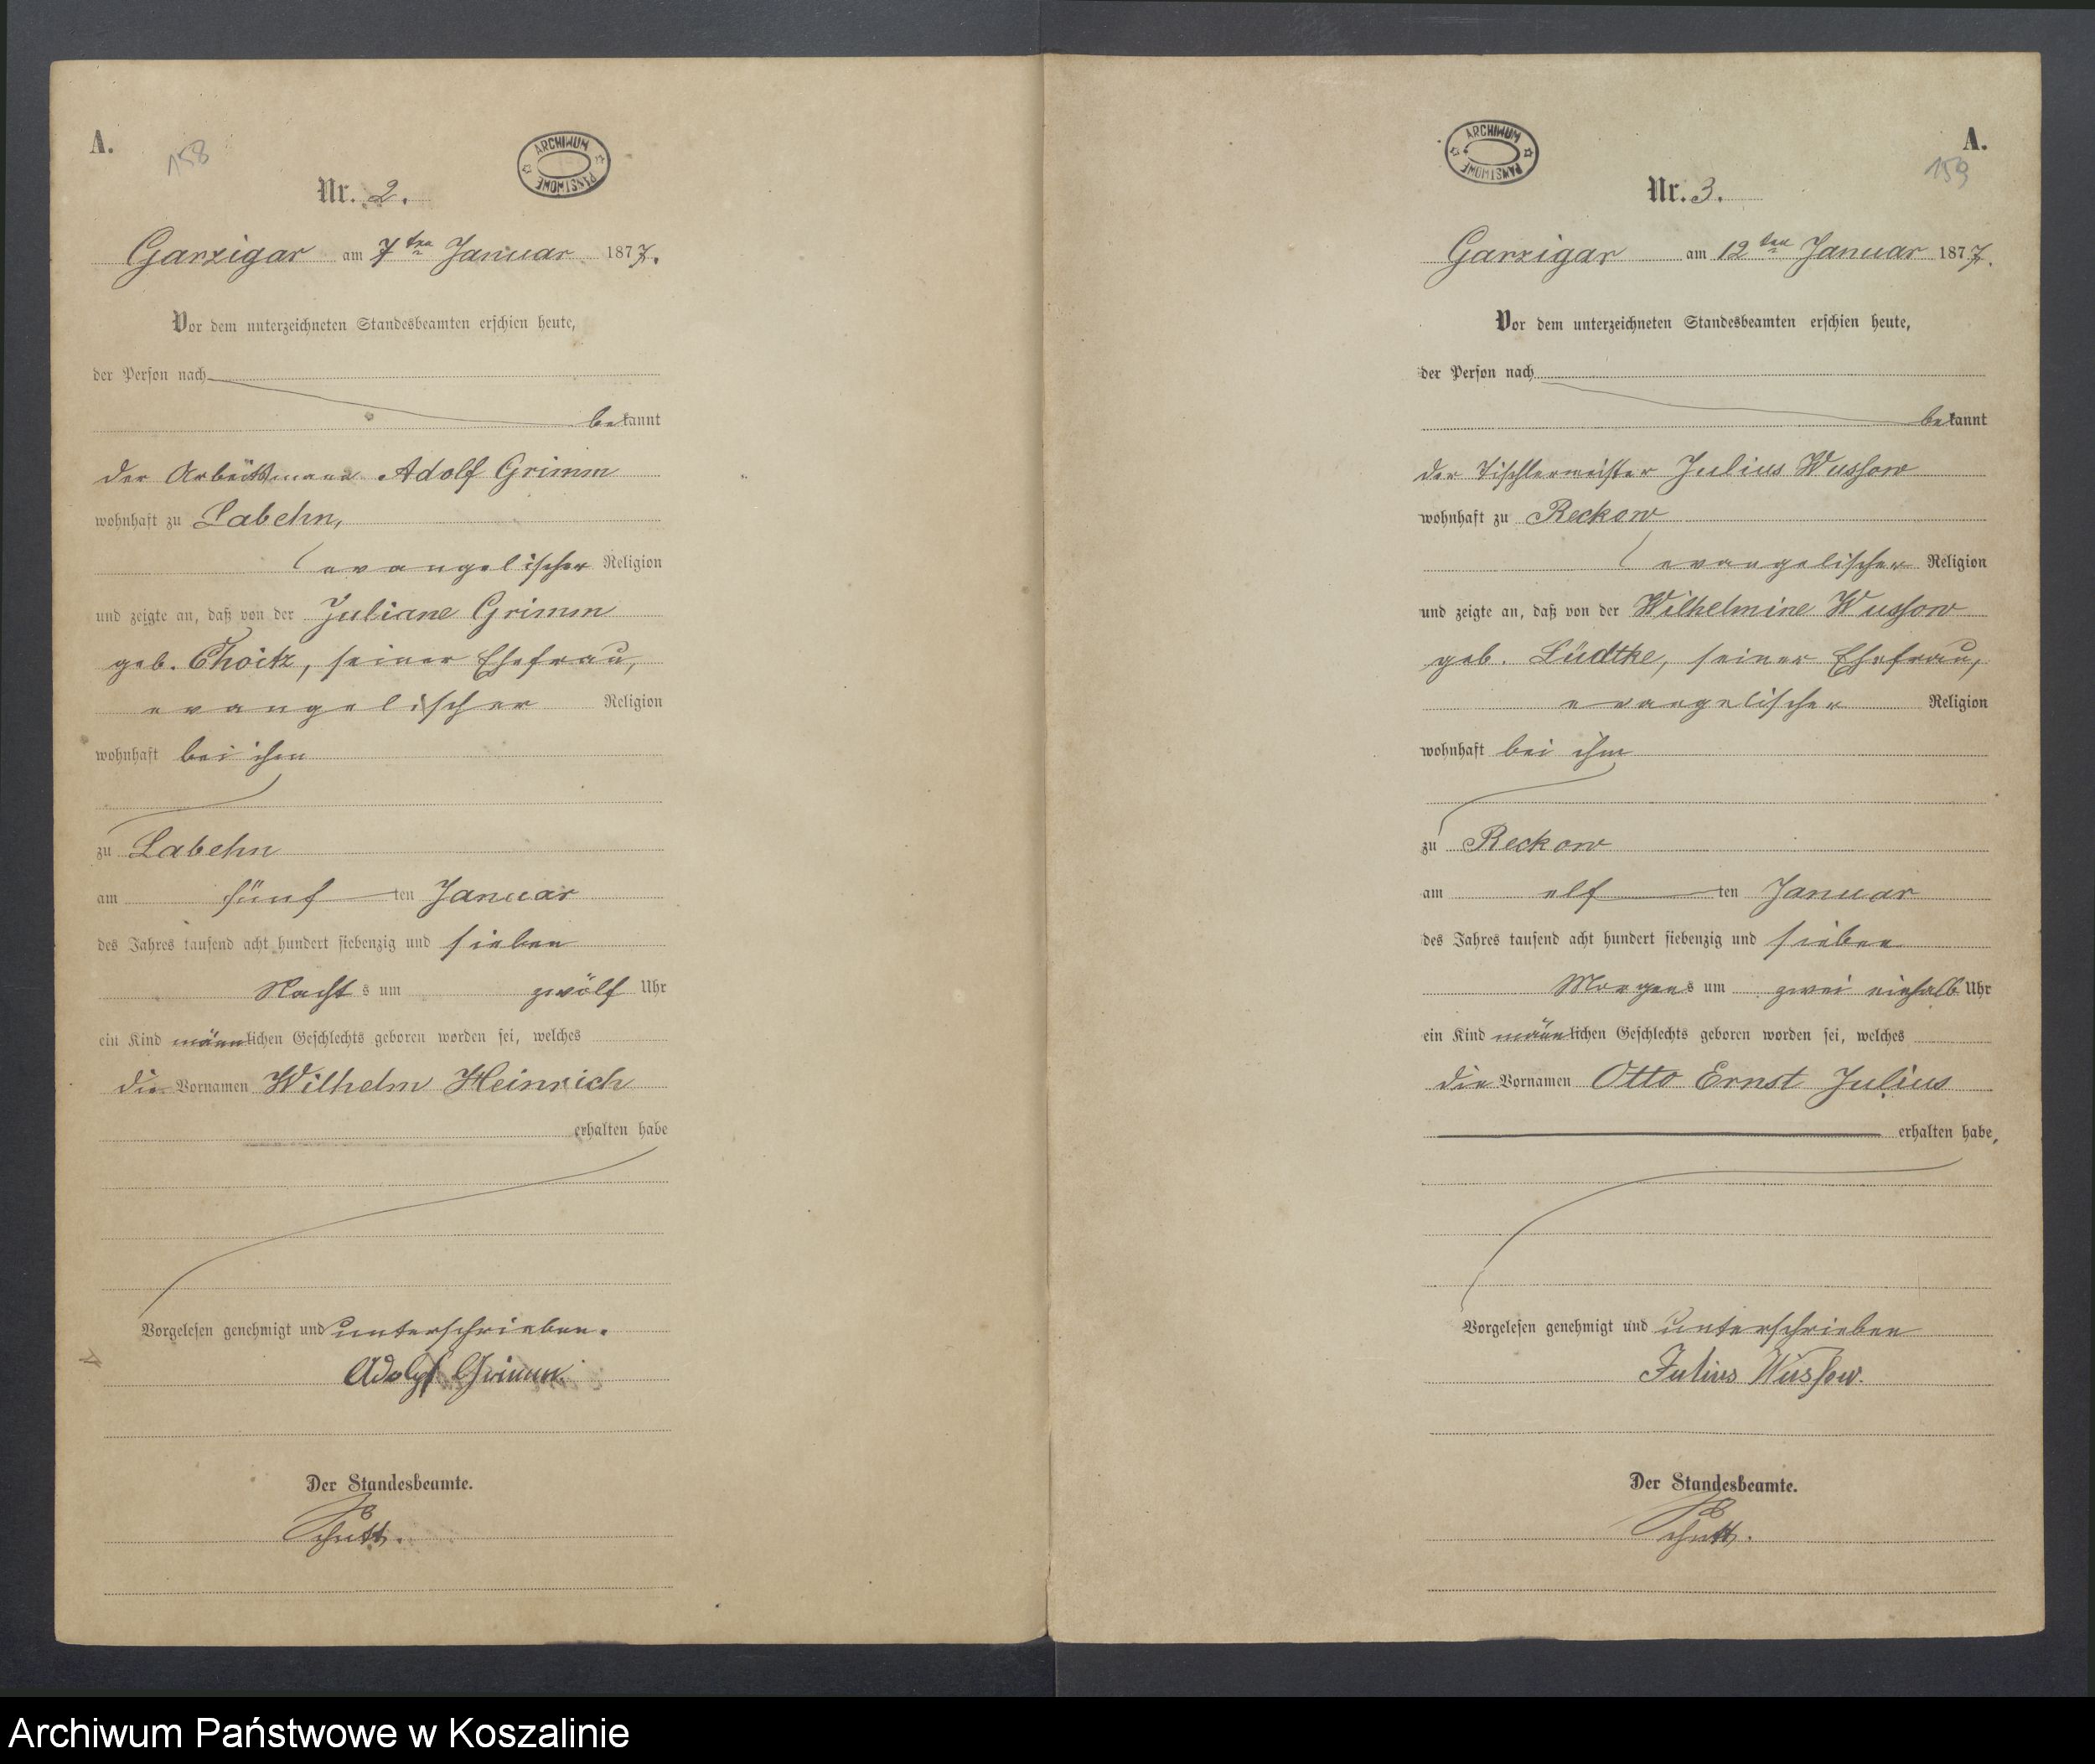 A.
158
ARCHIWUM PAŃSTWOWE
Nr. 2.
Garzigar am 7ten Januar 1877.
Vor dem unterzeichneten Standesbeamten erschien heute,
der Person nach
bekannt
der Arbeitsmann Adolf Grimm
wohnhaft zu Labehn,
evangelischer Religion
und zeigte an, daß von der Juliane Grimm
geb. Choitz, seiner Ehefrau,
evangelischer Religion
wohnhaft bei ihm
zu Labehn
am fünften Januar
des Jahres tausend acht hundert siebenzig und sieben
Nachts um zwölf Uhr
ein Kind männlichen Geschlechts geboren worden sei, welches
die Vornamen Wilhelm Heinrich
erhalten habe
Vorgelesen genehmigt und unterschrieben.
Adolf Grimm.
Der Standesbeamte.
A.
159
ARCHIWUM PAŃSTWOWE
Nr. 3.
Garzigar am 12ten Januar 1877.
Vor dem unterzeichneten Standesbeamten erschien heute,
der Person nach
bekannt
der Tischlermeister Julius Wussow
wohnhaft zu Reckow
evangelischer Religion
und zeigte an, daß von der Wilhelmine Wussow
geb. Lüdtke, seiner Ehefrau,
evangelischer Religion
wohnhaft bei ihm
zu Reckow
am elften Januar
des Jahres tausend acht hundert siebenzig und sieben
Morgens um zwei einhalb Uhr
ein Kind männlichen Geschlechts geboren worden sei, welches
die Vornamen Otto Ernst Julius
erhalten habe,
Vorgelesen genehmigt und unterschrieben
Julius Wussow.
Der Standesbeamte.
Archiwum Państwowe w Koszalinie